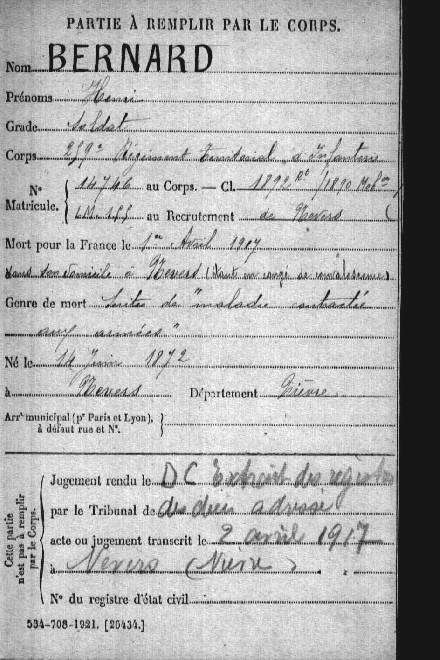 PARTIE À REMPLIR PAR LE CORPS.
Nom BERNARD
Prénoms Henri
Grade Soldat
Corps Régiment Territorial d'Infanterie
N° Matricule. { 14746 au Corps. — Cl. 1892 /1890
au Recrutement de Nevers
Mort pour la France le 1er Avril 1917
dans son domicile à Nevers (étant en congé de convalescence)
Genre de mort Suites de "maladie contractée
aux armées"
Né le 14 Juin 1872
à Nevers Département Nièvre
Arrt municipal (pr Paris et Lyon), à défaut rue et N°. }
Cette partie n'est pas à remplir par le Corps.
Jugement rendu le DC Extrait des registres
par le Tribunal de des décès adressé
acte ou jugement transcrit le 2 avril 1917
à Nevers (Nièvre)
N° du registre d'état civil
534-708-1921. [26434.]